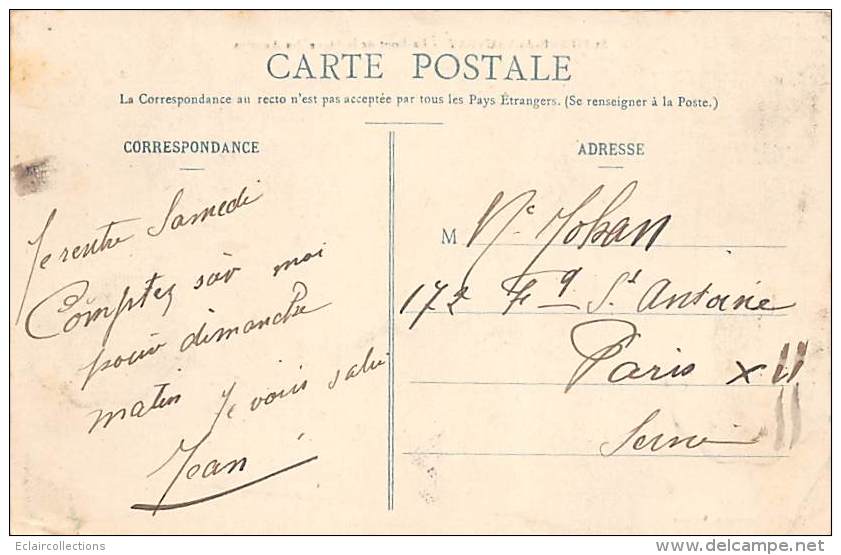 CARTE POSTALE
La Correspondance au recto n'est pas acceptée par tous les Pays Étrangers. (Se renseigner à la Poste.)
CORRESPONDANCE
Je rentre Samedi
Comptez sur moi
pour dimanche
matin Je vous salue
Jean
ADRESSE
M
172 Fg St Antoine
Paris XII
Seine
Eclaircollections
www.delcampe.net